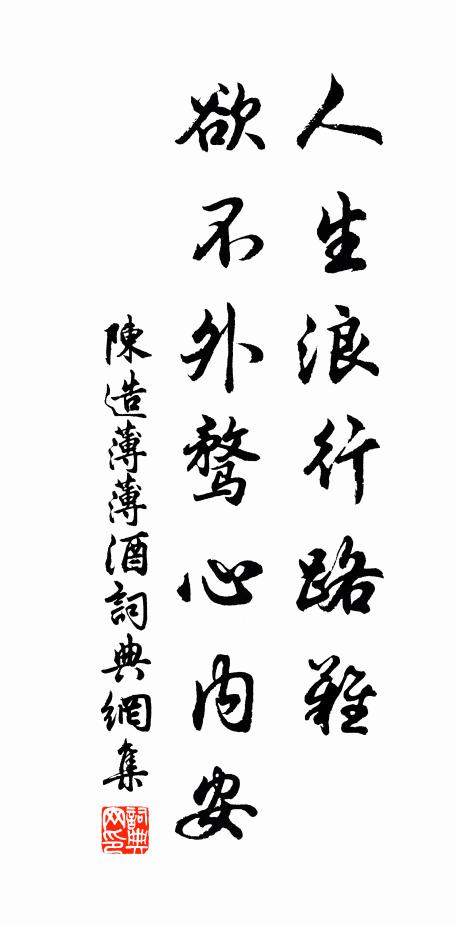 人生浪行路難
欲不外騖心内安
陳造薄薄酒詞典網集
詞典网印